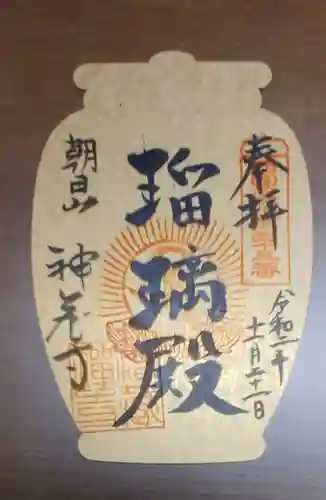 奉拝
令和二年
十一月二十一日
瑠璃殿
朝日山
神光寺